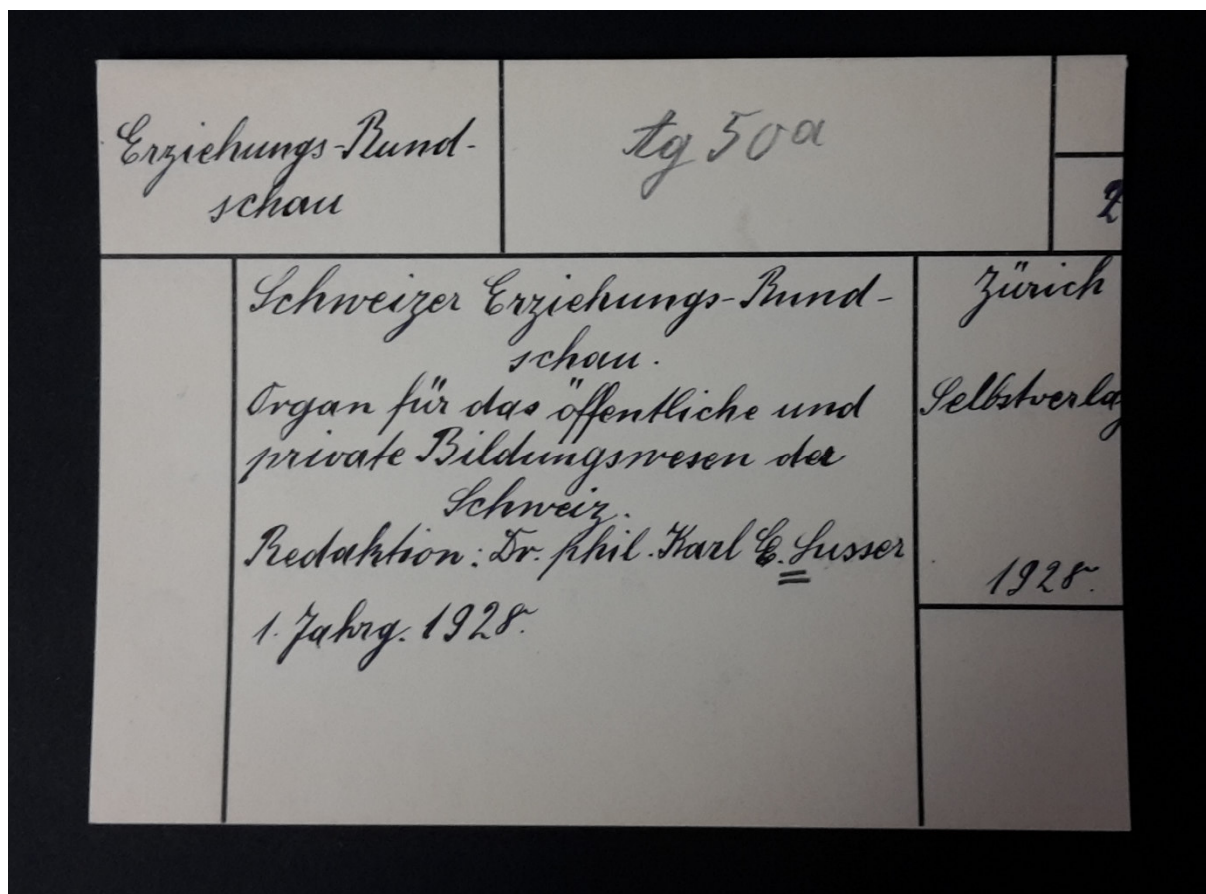 Erziehungs-Rund-
schau
Ag 50a
2
Schweizer Erziehungs-Rund-
schau.
Organ für das öffentliche und
private Bildungswesen der
Schweiz.
Redaktion: Dr. phil. Karl E. Lusser
1. Jahrg. 1928.
Zürich
Selbstverlag
1928.